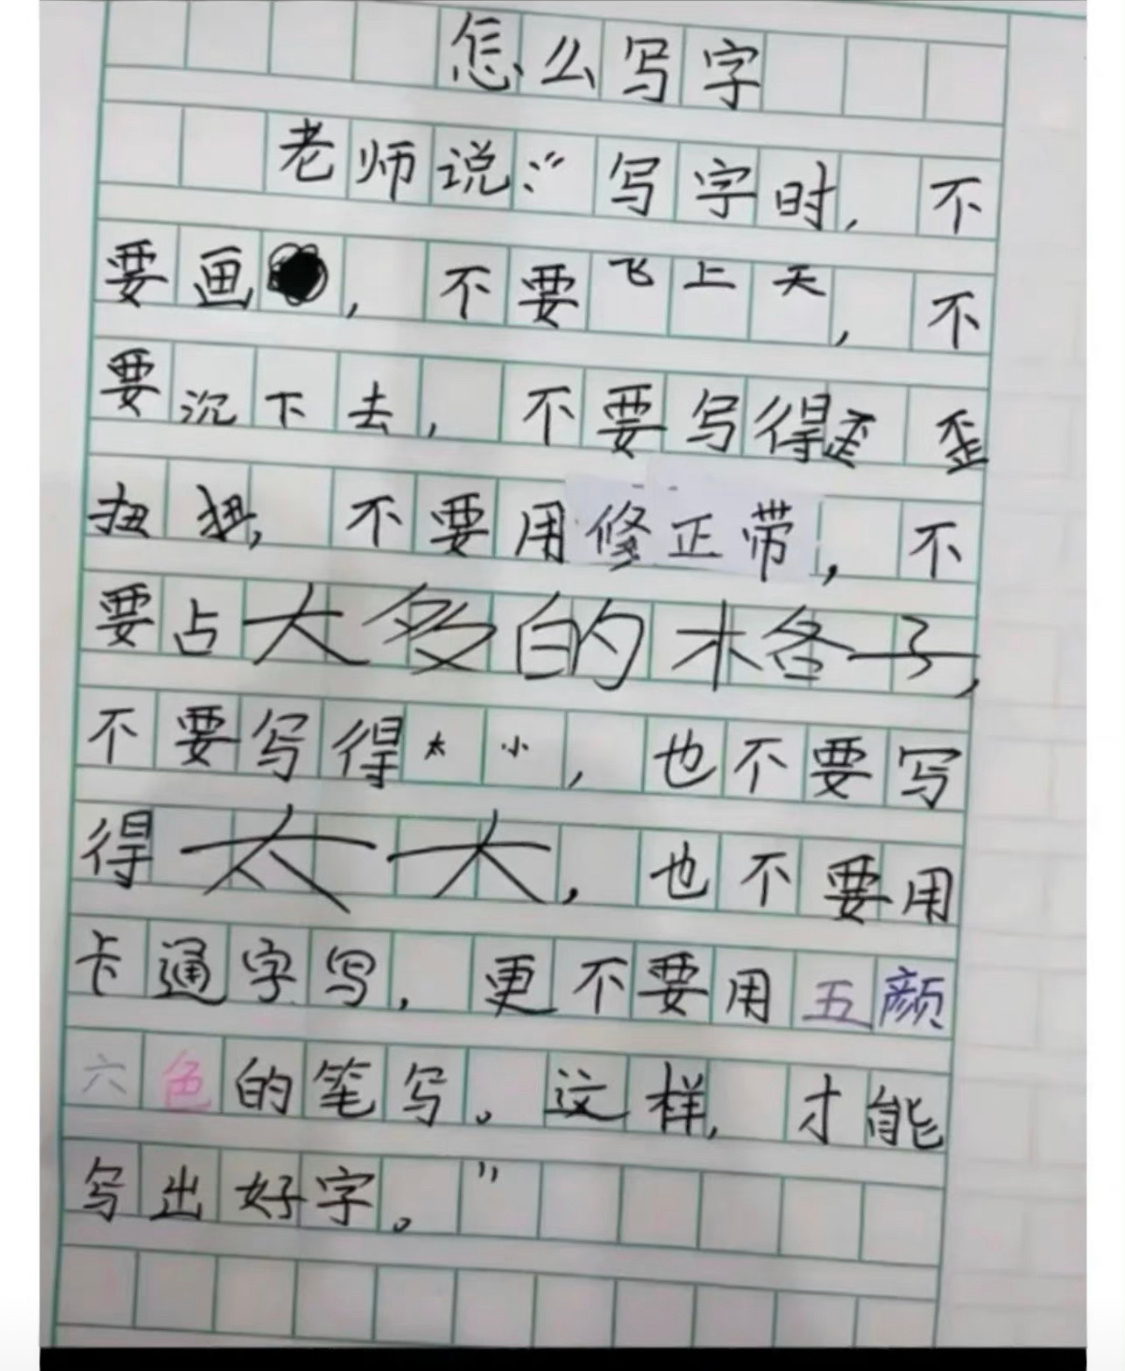 怎么写字
老师说:“写字时,不
要画,不要飞上天,不
要沉下去,不要写得歪歪
扭扭,不要用修正带,不
要占太多的木各子,
不要写得太小,也不要写
得太大,也不要用
卡通字写,更不要用五颜
六色的笔写。这样,才能
写出好字。”